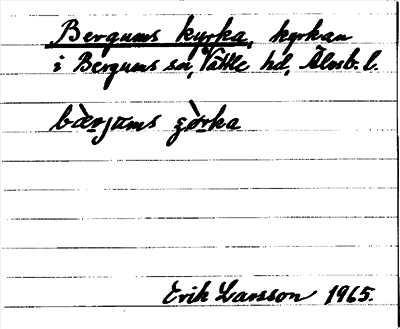 Bergums kyrka, kyrkan
i Bergums sn, Vättle hd, Älvsb. l.
bær̀jums çòrka
Erik Larsson 1965.